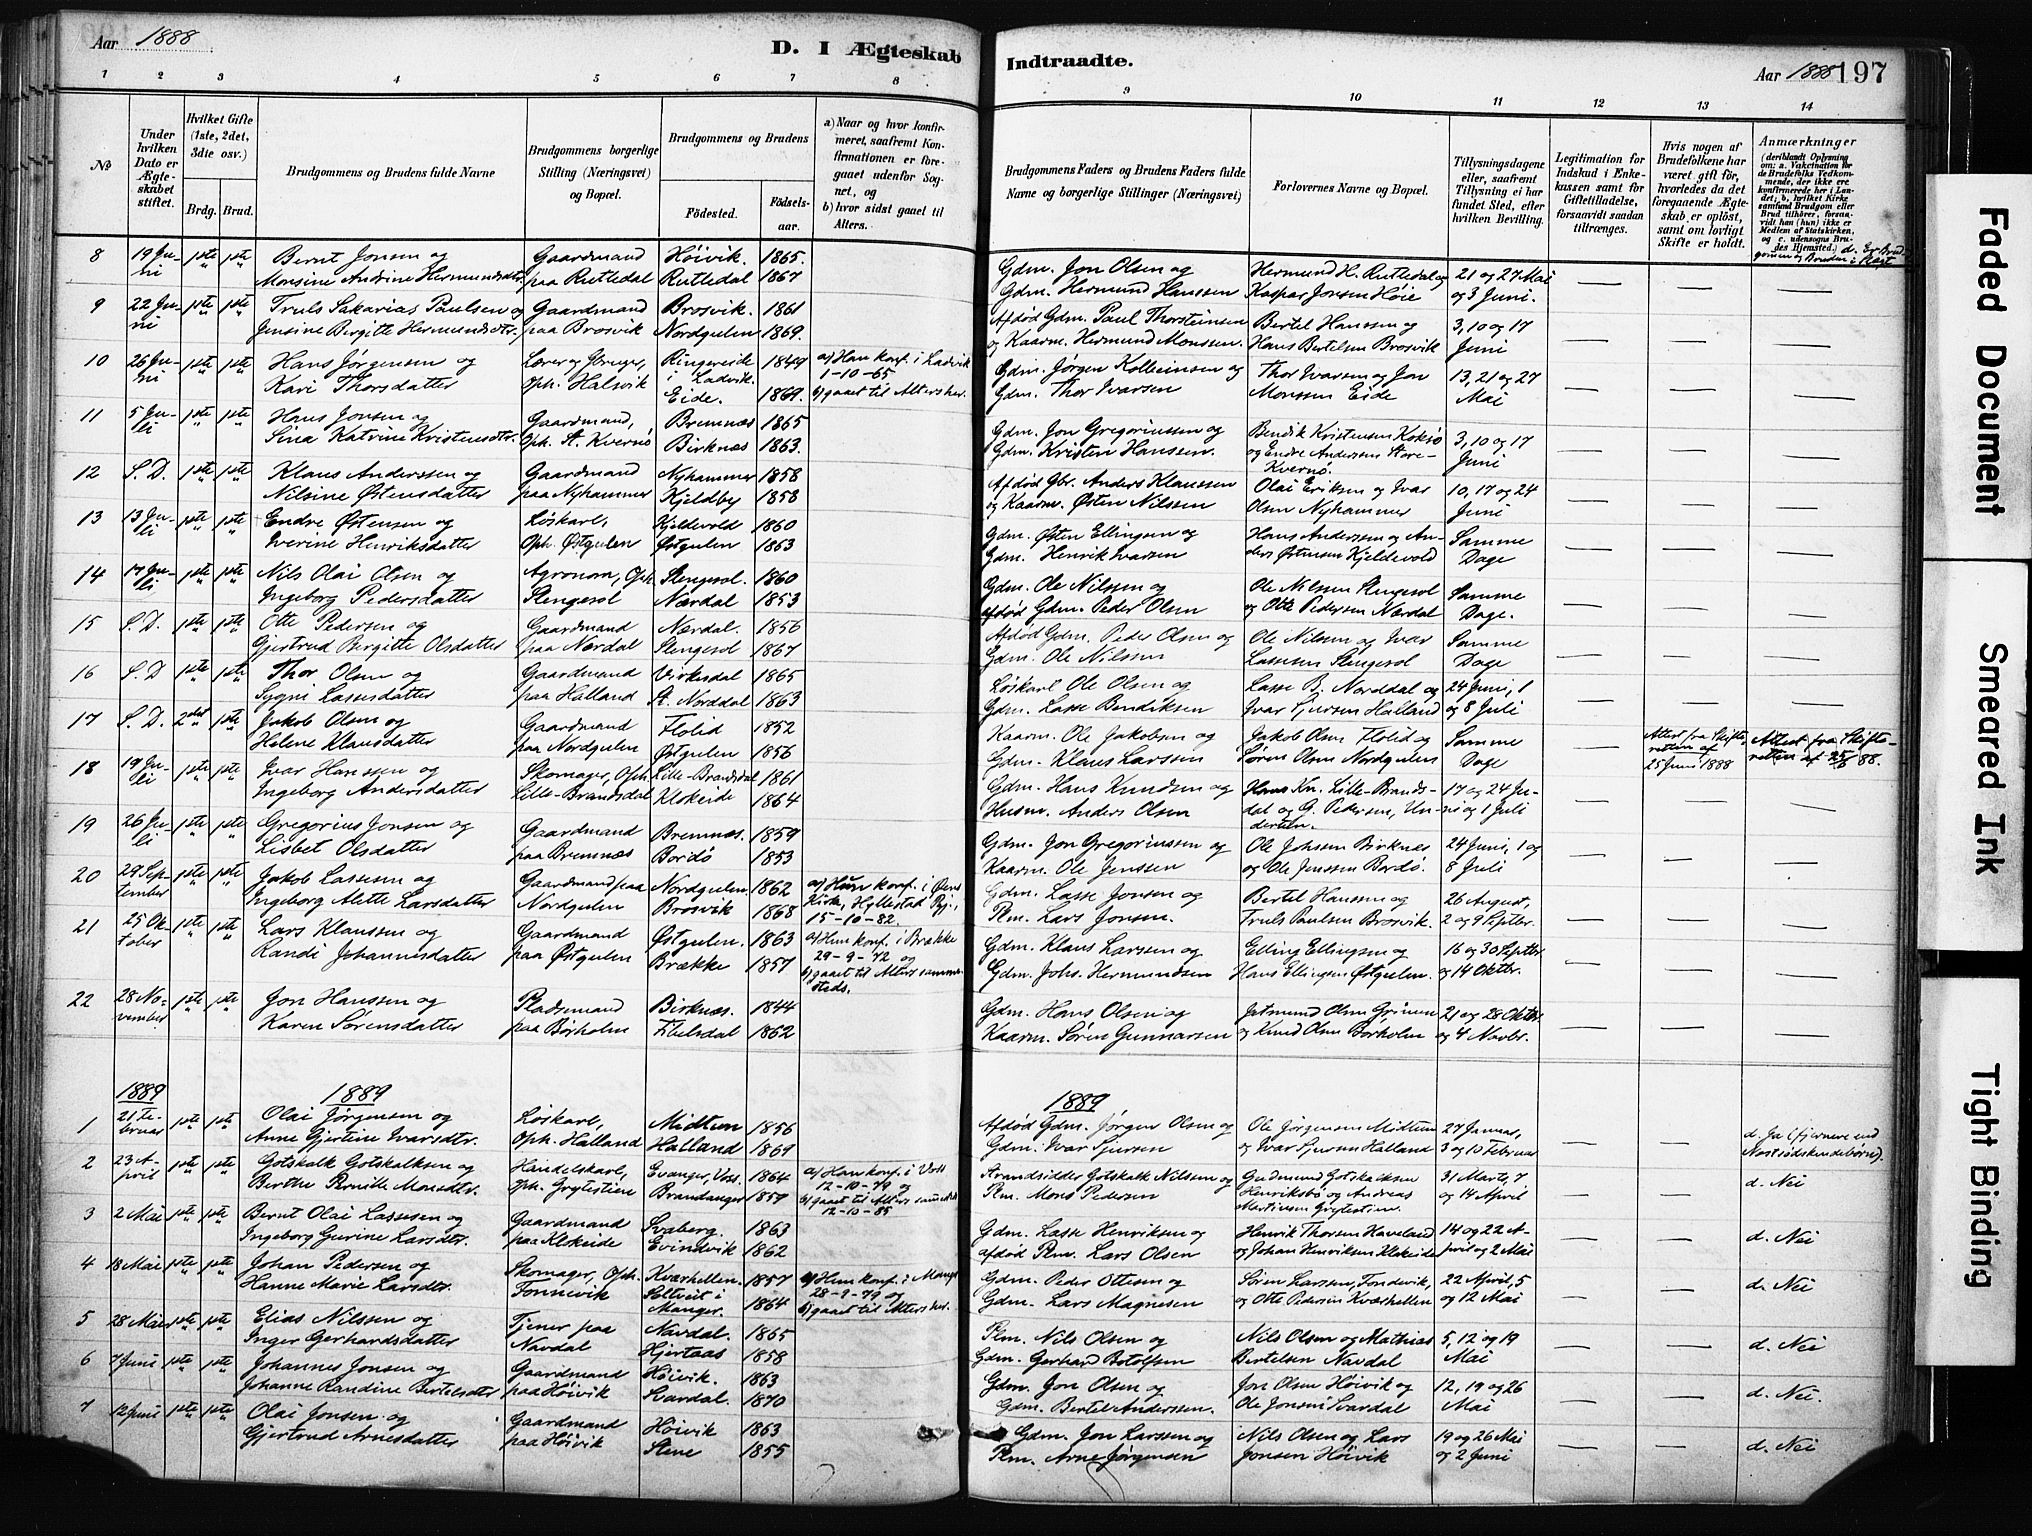 Aar 1888
D. I Ægteskab Indtraadte.
Aar 1888 197
1 2 3 4 5 6 7 8 9 10 11 12 13 14
№
Under hvilken Dato er Ægteskabet stiftet.
Hvilket Gifte (1ste, 2det, 3die osv.)
Brdg. Brud.
Brudgommens og Brudens fulde Navne
Brudgommens borgerlige Stilling (Næringsvei) og Bopæl.
Brudgommens og Brudens
Fødested. Fødselsaar.
a) Naar og hvor konfirmeret, saafremt Konfirmationen er foregaaet udenfor Sognet, og
b) hvor sidst gaaet til Alters.
Brudgommens Faders og Brudens Faders fulde Navne og borgerlige Stillinger (Næringsvei)
Forlovernes Navne og Bopæl.
Tillysningsdagene eller, saafremt Tillysning ei har fundet Sted, efter hvilken Bevilling.
Legitimation for Indskud i Enkekassen samt for Giftetilladelse, forsaavidt saadan tiltrænges.
Hvis nogen af Brudefolkene har været gift før, hvorledes da det foregaaende Ægteskab er opløst, samt om lovligt Skifte er holdt.
Anmærkninger
(deriblandt Oplysning om: a. Vakcination for de Brudefolks Vedkommende, der ikke ere konfirmerede her i Landet; b. hvilket Kirkesamfund Brudgom eller Brud tilhører, forsaavidt han (hun) ikke er Medlem af Statskirken, og c. udensogns Brudes Hjemsted.) d. Er Brudgommen og Bruden i Slægt
8 19 Juni 1ste 1ste Bernt Jonsen og Gaardmand Høivik. 1865. Gdm. Jon Olsen og Hermund H. Rutledal og 21 og 27 Mai
Monsine Andrine Hermundsdtr paa Rutledal Rutledal 1867 Gdm. Hermund Hanssen Kaspar Jonsen Høie og 3 Juni.
9 22 Juni 1ste 1ste Truls Sakarias Paulsen og Gaardmand Brosvik. 1861 Afdød Gdm. Paul Thorsteinsen Bertel Hanssen og 3, 10 og 17
Jensine Birgitte Hermundsdtr. paa Brosvik Nordgulen 1869. og Kaarm. Hermund Monssen. Hans Bertelsen Brosvik Juni
10 26 Juni 1ste 1ste Hans Jørgensen og Lærer og Bruger, Ringereide i Ladvik. 1849 a) Han konf. i Ladvik 1-10-65 Gdm. Jørgen Kolbeinsen og Thor Ivarsen og Jon 13, 21 og 27
Kari Thorsdatter Oph. Halsvik Eide. 1869. b) gaaet til Alters her. Gdm. Thor Ivarsen Monssen Eide Mai
11 5 Juli 1ste 1ste Hans Jonsen og Gaardmand, Bremnæs 1865 Gdm. Jon Gregoriussen og Bendik Kristensen Koksø 3, 10 og 17
Sina Katrine Kristensdtr. Oph. St. Kvernø Birknæs 1863. Gdm. Kristen Hanssen. og Endre Andersen Store-Kvernø. Juni
12 S. D. 1ste 1ste Klaus Anderssen og Gaardmand Nyhammer 1858 Afdød Gbr. Anders Klaussen Olai Eriksen og Ivar 10, 17 og 24
Nilsine Østensdatter paa Nyhammer Kjeldby 1858 og Kaarm. Østen Nilssen Olsen Nyhammer Juni
13 13 Juli 1ste 1ste Endre Østensen og Løskarl, Kjeldevold 1860 Gdm. Østen Ellingsen og Hans Anderssen og An- Samme
Iverine Henriksdatter Oph. Østgulen Østgulen 1863 Gdm. Henrik Ivarsen ders Østensen Kjeldevold Dage
14 17 Juli 1ste 1ste Nils Olai Olsen og Agronom, Oph. Slengesol. 1860 Gdm. Ole Nilssen og Ole Nilssen Slengesol Samme
Ingeborg Pedersdatter Slengesol Nærdal 1853 afdød Gdm. Peder Olsen og Otte Pedersen Nærdal Dage.
15 S. D. 1ste 1ste Otte Pedersen og Gaardmand Nærdal. 1856 Afdød Gdm. Peder Olsen og Ole Nilssen og Ivar Samme
Gjertrud Birgitte Olsdatter paa Nærdal Slengesol 1867 Gdm. Ole Nilssen Lassesen Slengesol Dage
16 S. D 1ste 1ste Thor Olsen og Gaardmand Virkesdal 1865 Løskarl Ole Olsen og Lasse B. Norddal og 24 Juni, 1
Sygni Lassesdatter paa Halland St. Norddal 1863 Gdm. Lasse Bendiksen Ivar Sjursen Halland og 8 Juli
17 S. D. 2det 1ste Jakob Olsen og Gaardmand Flolid 1852 Kaarm. Ole Jakobsen og Jakob Olsen Flolid og Samme Attest fra Skifteretten af 25 Juni 1888 Attest fra Skifteretten af 25/6 88.
Helene Klausdatter paa Nordgulen Østgulen 1856 Gdm. Klaus Larssen Søren Olsen Nordgulen Dage
18 19 Juli 1ste 1ste Ivar Hanssen og Skomager, Oph. Lille-Brandsdal 1861 Gdm. Hans Knudsen og Hans Kn. Lille-Brands- 17 og 24 Ju-
Ingeborg Andersdatter Lille-Brandsdal Klokeide 1864 Husm. Anders Olsen dal og G. Pedersen, Undertun. ni og 1 Juli
19 26 Juli 1ste 1ste Gregorius Jonsen og Gaardmand Bremnæs. 1859 Gdm. Jon Gregoriussen og Ole Johssen Birknæs 24 Juni, 1 og
Lisbet Olsdatter paa Bremnæs Bordø 1853 Kaarm. Ole Jenssen og Ole Jenssen Bordø. 8 Juli
20 29 September 1ste 1ste Jakob Lassesen og Gaardmand paa Nordgulen. 1862 a) Hun konf. i Øens Kirke, Hyllestad Pgj., 15-10-82. Gdm. Lasse Jonsen og Bertel Hanssen og 26 August,
Ingeborg Alette Larsdatter Nordgulen Brosvik 1868 Plm. Lars Jonsen. Truls Paulsen Brosvik. 2 og 9 Septbr.
21 25 Oktober 1ste 1ste Lars Klaussen og Gaardmand Østgulen. 1863 a) Hun konf. i Brække 29-9-72 og Gdm. Klaus Larssen og Elling Ellingsen og 16 og 30 Septbr.
Randi Johannesdatter paa Østgulen Brække 1857 b) gaaet til Alters sammesteds. Gdm. Johs. Hermundsen Hans Ellingsen Østgulen. og 14 Oktbr.
22 28 November 1ste 1ste Jon Hanssen og Pladsemand Birknæs. 1844 Gdm. Hans Olsen og Jetmund Olsen Grinen 21 og 28 Oktbr.
Karen Sørensdatter paa Børholm Ebelsdal 1862 Kaarm. Søren Gunnarsen og Knud Olsen Børholm og 4 Novbr.
1889 1889 1889
1 21 Februar 1ste 1ste Olai Jørgensen og Løskarl, Midtun 1856 Afdød Gdm. Jørgen Olsen og Ole Jørgensen Midtun 27 Januar, d. Ja (fjernere end Næstsødskendebørn).
Anne Gjertine Ivarsdtr. Oph. Halland Halland 1869 Gdm. Ivar Sjursen og Ivar Sjursen Halland 3 og 10 Februar
2 23 April 1ste 1ste Gotskalk Gotskalksen og Handelskarl, Evanger, Voss. 1864 a) Han konf. i Voss 12-10-79 og Strandsidder Gotskalk Nilssen og Gudmund Gotskalksen 31 Marts, 7 d. Nei
Berthe Pernille Monsdtr. Oph. Grytestien Brandanger 1857 b) gaaet til Alters sammesteds 12-10-85 Plm. Mons Pedersen Henriksbø og Andreas Martinsen Grytestien. og 14 April
3 2 Mai 1ste 1ste Bernt Olai Lassesen og Gaardmand Svaberg. 1863 Gdm. Lasse Henriksen og Henrik Thorsen Haveland 14 og 22 A- d. Nei
Ingeborg Gurine Larsdtr. paa Klokeide Evindvik 1862 afdød Plm. Lars Olsen og Johan Henriksen Klokeide pril og 2 Mai
4 18 Mai 1ste 1ste Johan Pedersen og Skomager, Oph. Kværhellen. 1857 a) Hun konf. i Manger 28-9-79 og Gdm. Peder Ottesen og Søren Larssen, Tondevik, 22 April, 5 d. Nei
Hanne Marie Larsdtr. Tonnevik Seltveit i Manger. 1864 b) gaaet til Alters her. Gdm. Lars Magnesen og Otte Pedersen Kværhellen og 12 Mai
5 28 Mai 1ste 1ste Elias Nilssen og Tjener paa Navdal. 1865 Plm. Nils Olsen og Nils Olsen og Mathias 5, 12 og 19 d. Nei
Inger Gerhardsdatter Navdal Hjertaas 1858 Gdm. Gerhard Botolfsen Bertelsen Navdal Mai
6 7 Juni 1ste 1ste Johannes Jonsen og Gaardmand Høivik. 1863 Gdm. Jon Olsen og Jon Olsen Høivik og 12, 19 og 26 d. Nei
Johanne Randine Bertelsdtr paa Høivik Svardal 1870 Gdm. Bertel Anderssen. Ole Jonsen Svardal Mai
7 12 Juni 1ste 1ste Olai Jonsen og Gaardmand Høivik 1863 Gdm. Jon Larssen og Nils Olsen og Lars 19 og 26 Mai d. Nei
Gjertrud Arnesdatter paa Høivik Stene 1855 Plm. Arne Jørgensen Jonsen Høivik og 2 Juni
Faded Document
Smeared Ink
Tight Binding